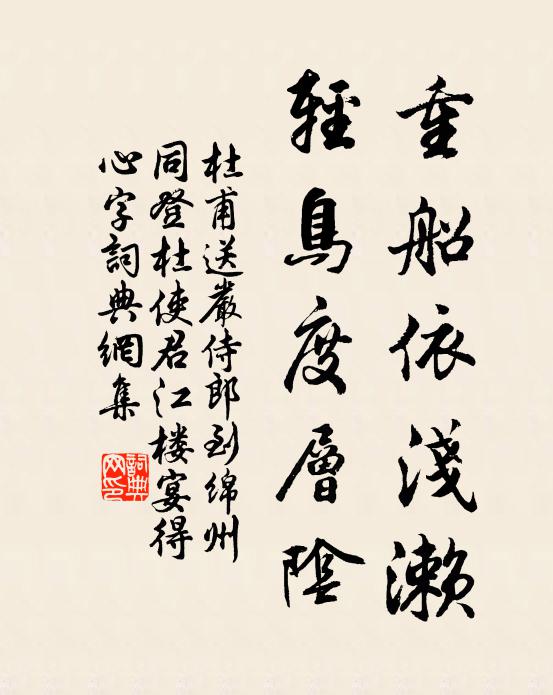 重船依淺瀨
輕鳥度層陰
杜甫送嚴侍郎到綿州
同登杜使君江楼宴得
心字詞典網集
詞典
网印